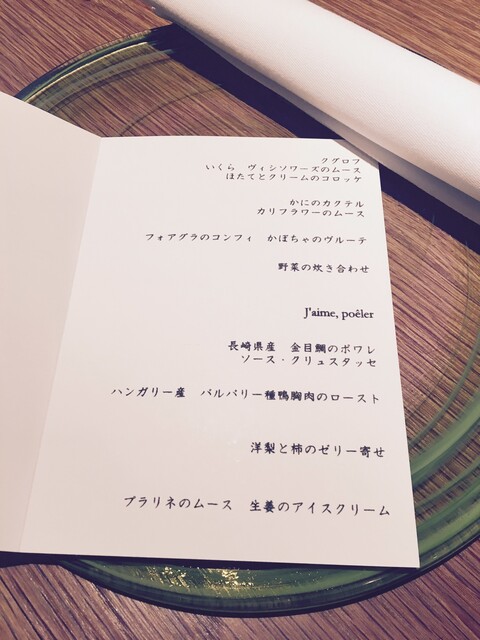 クグロフ
いくら　ヴィシソワーズのムース
ほたてとクリームのコロッケ
かにのカクテル
カリフラワーのムース
フォアグラのコンフィ　かぼちゃのヴルーテ
野菜の炊き合わせ
J'aime, poêler
長崎県産　金目鯛のポワレ
ソース・クリュスタッセ
ハンガリー産　バルバリー種鴨胸肉のロースト
洋梨と柿のゼリー寄せ
プラリネのムース　生姜のアイスクリーム